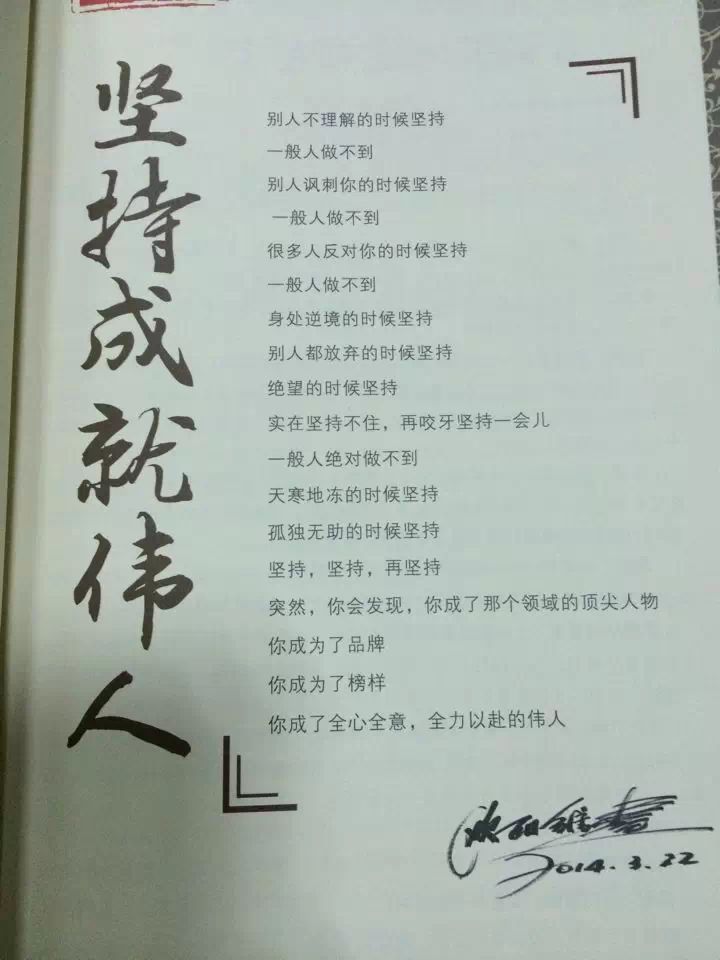 坚持成就伟人
别人不理解的时候坚持
一般人做不到
别人讽刺你的时候坚持
一般人做不到
很多人反对你的时候坚持
一般人做不到
身处逆境的时候坚持
别人都放弃的时候坚持
绝望的时候坚持
实在坚持不住，再咬牙坚持一会儿
一般人绝对做不到
天寒地冻的时候坚持
孤独无助的时候坚持
坚持，坚持，再坚持
突然，你会发现，你成了那个领域的顶尖人物
你成为了品牌
你成为了榜样
你成了全心全意，全力以赴的伟人
2014.3.22